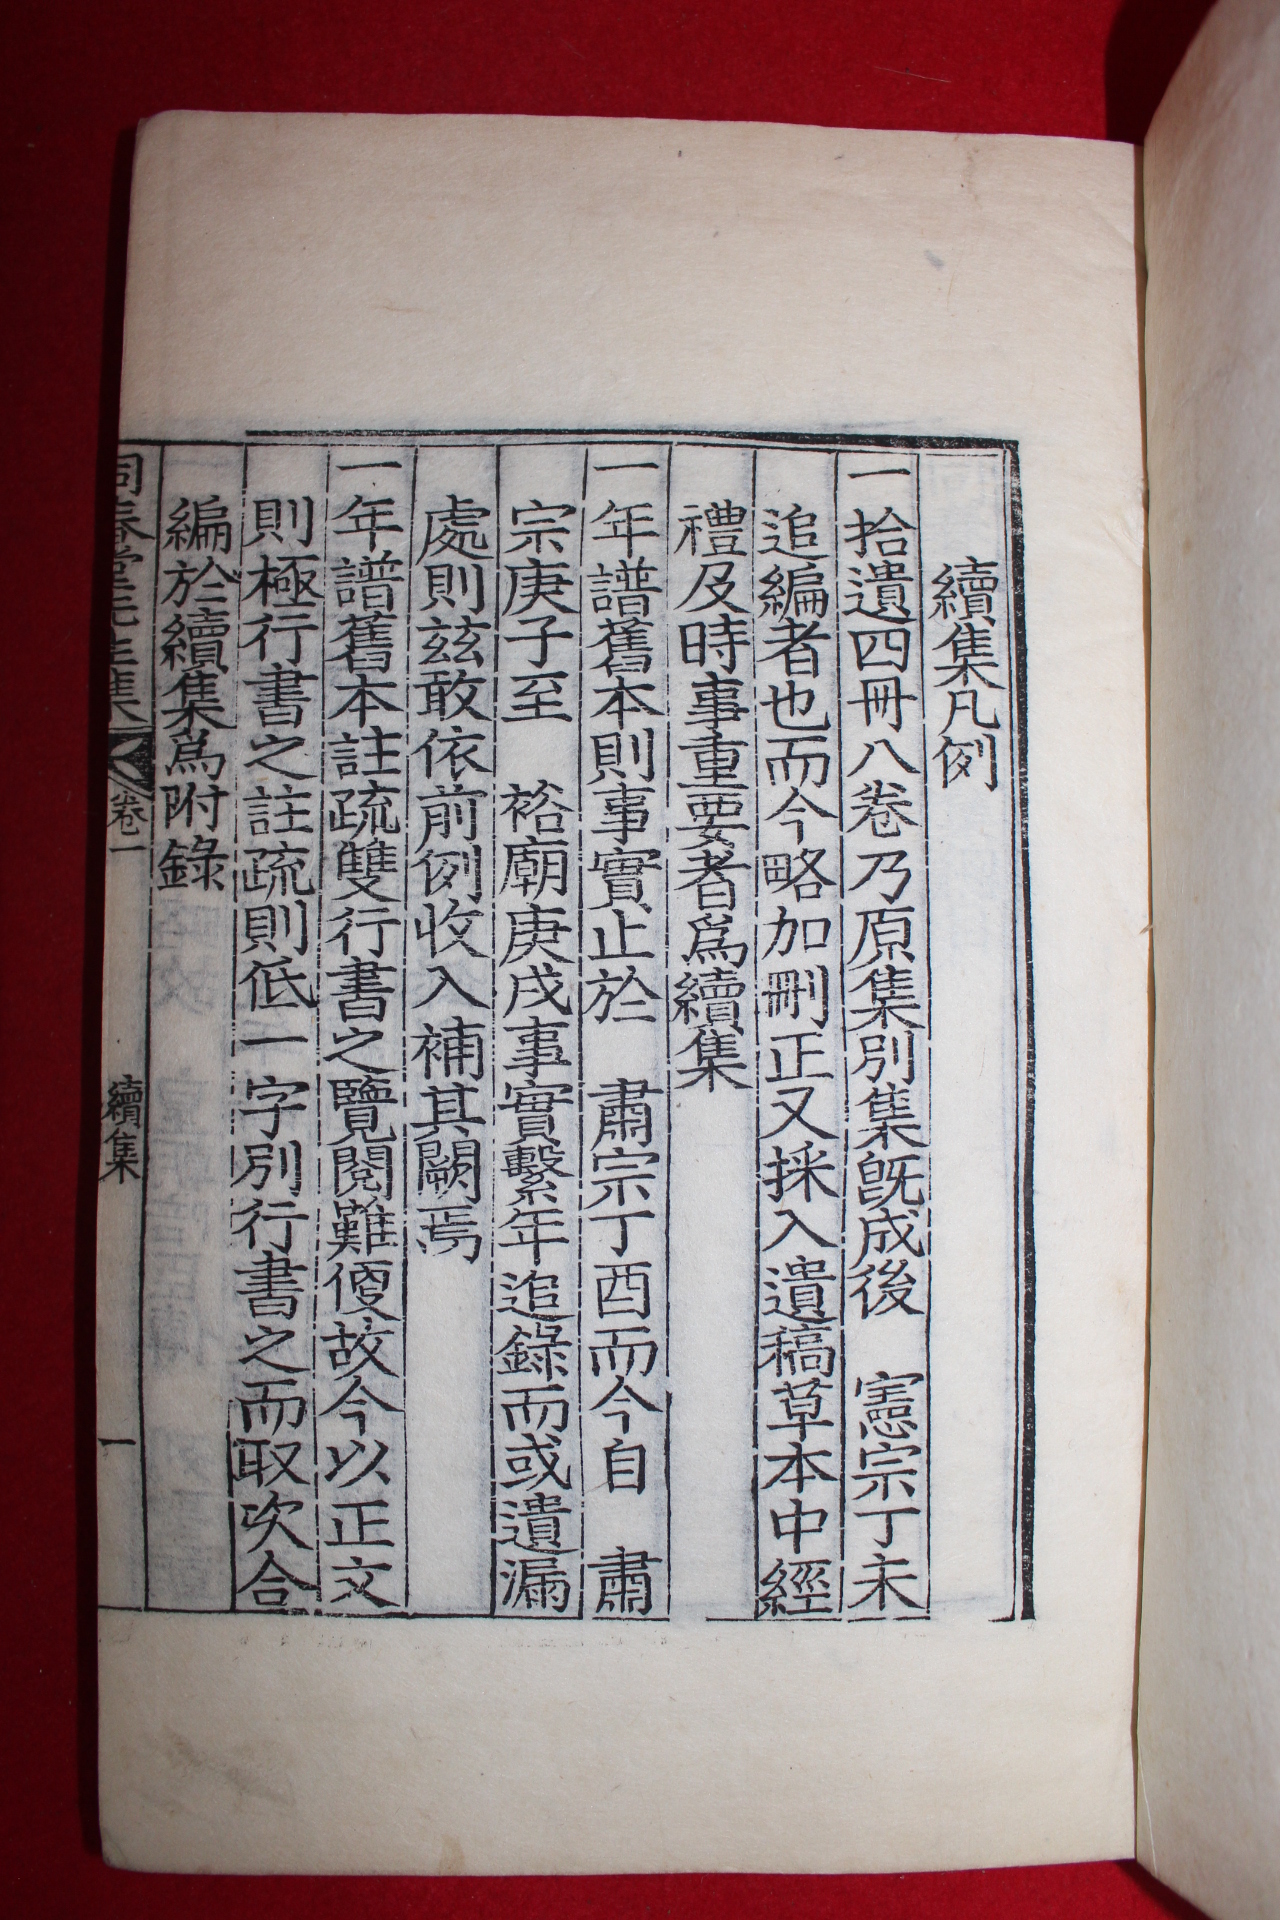 續集凡例
一拾遺四冊八卷乃原集別集旣成後　憲宗丁未
追編者也而今略加刪正又採入遺稿草本中經
禮及時事重要者爲續集
一年譜舊本則事實止於　肅宗丁酉而今自　肅
宗庚子至　裕廟庚戌事實繫年追錄而或遺漏
處則玆敢依前例收入補其闕焉
一年譜舊本註疏雙行書之覽閱難便故今以正文
則極行書之註疏則低一字別行書之而取次合
編於續集爲附錄
同春堂先生集　卷一　續集　一